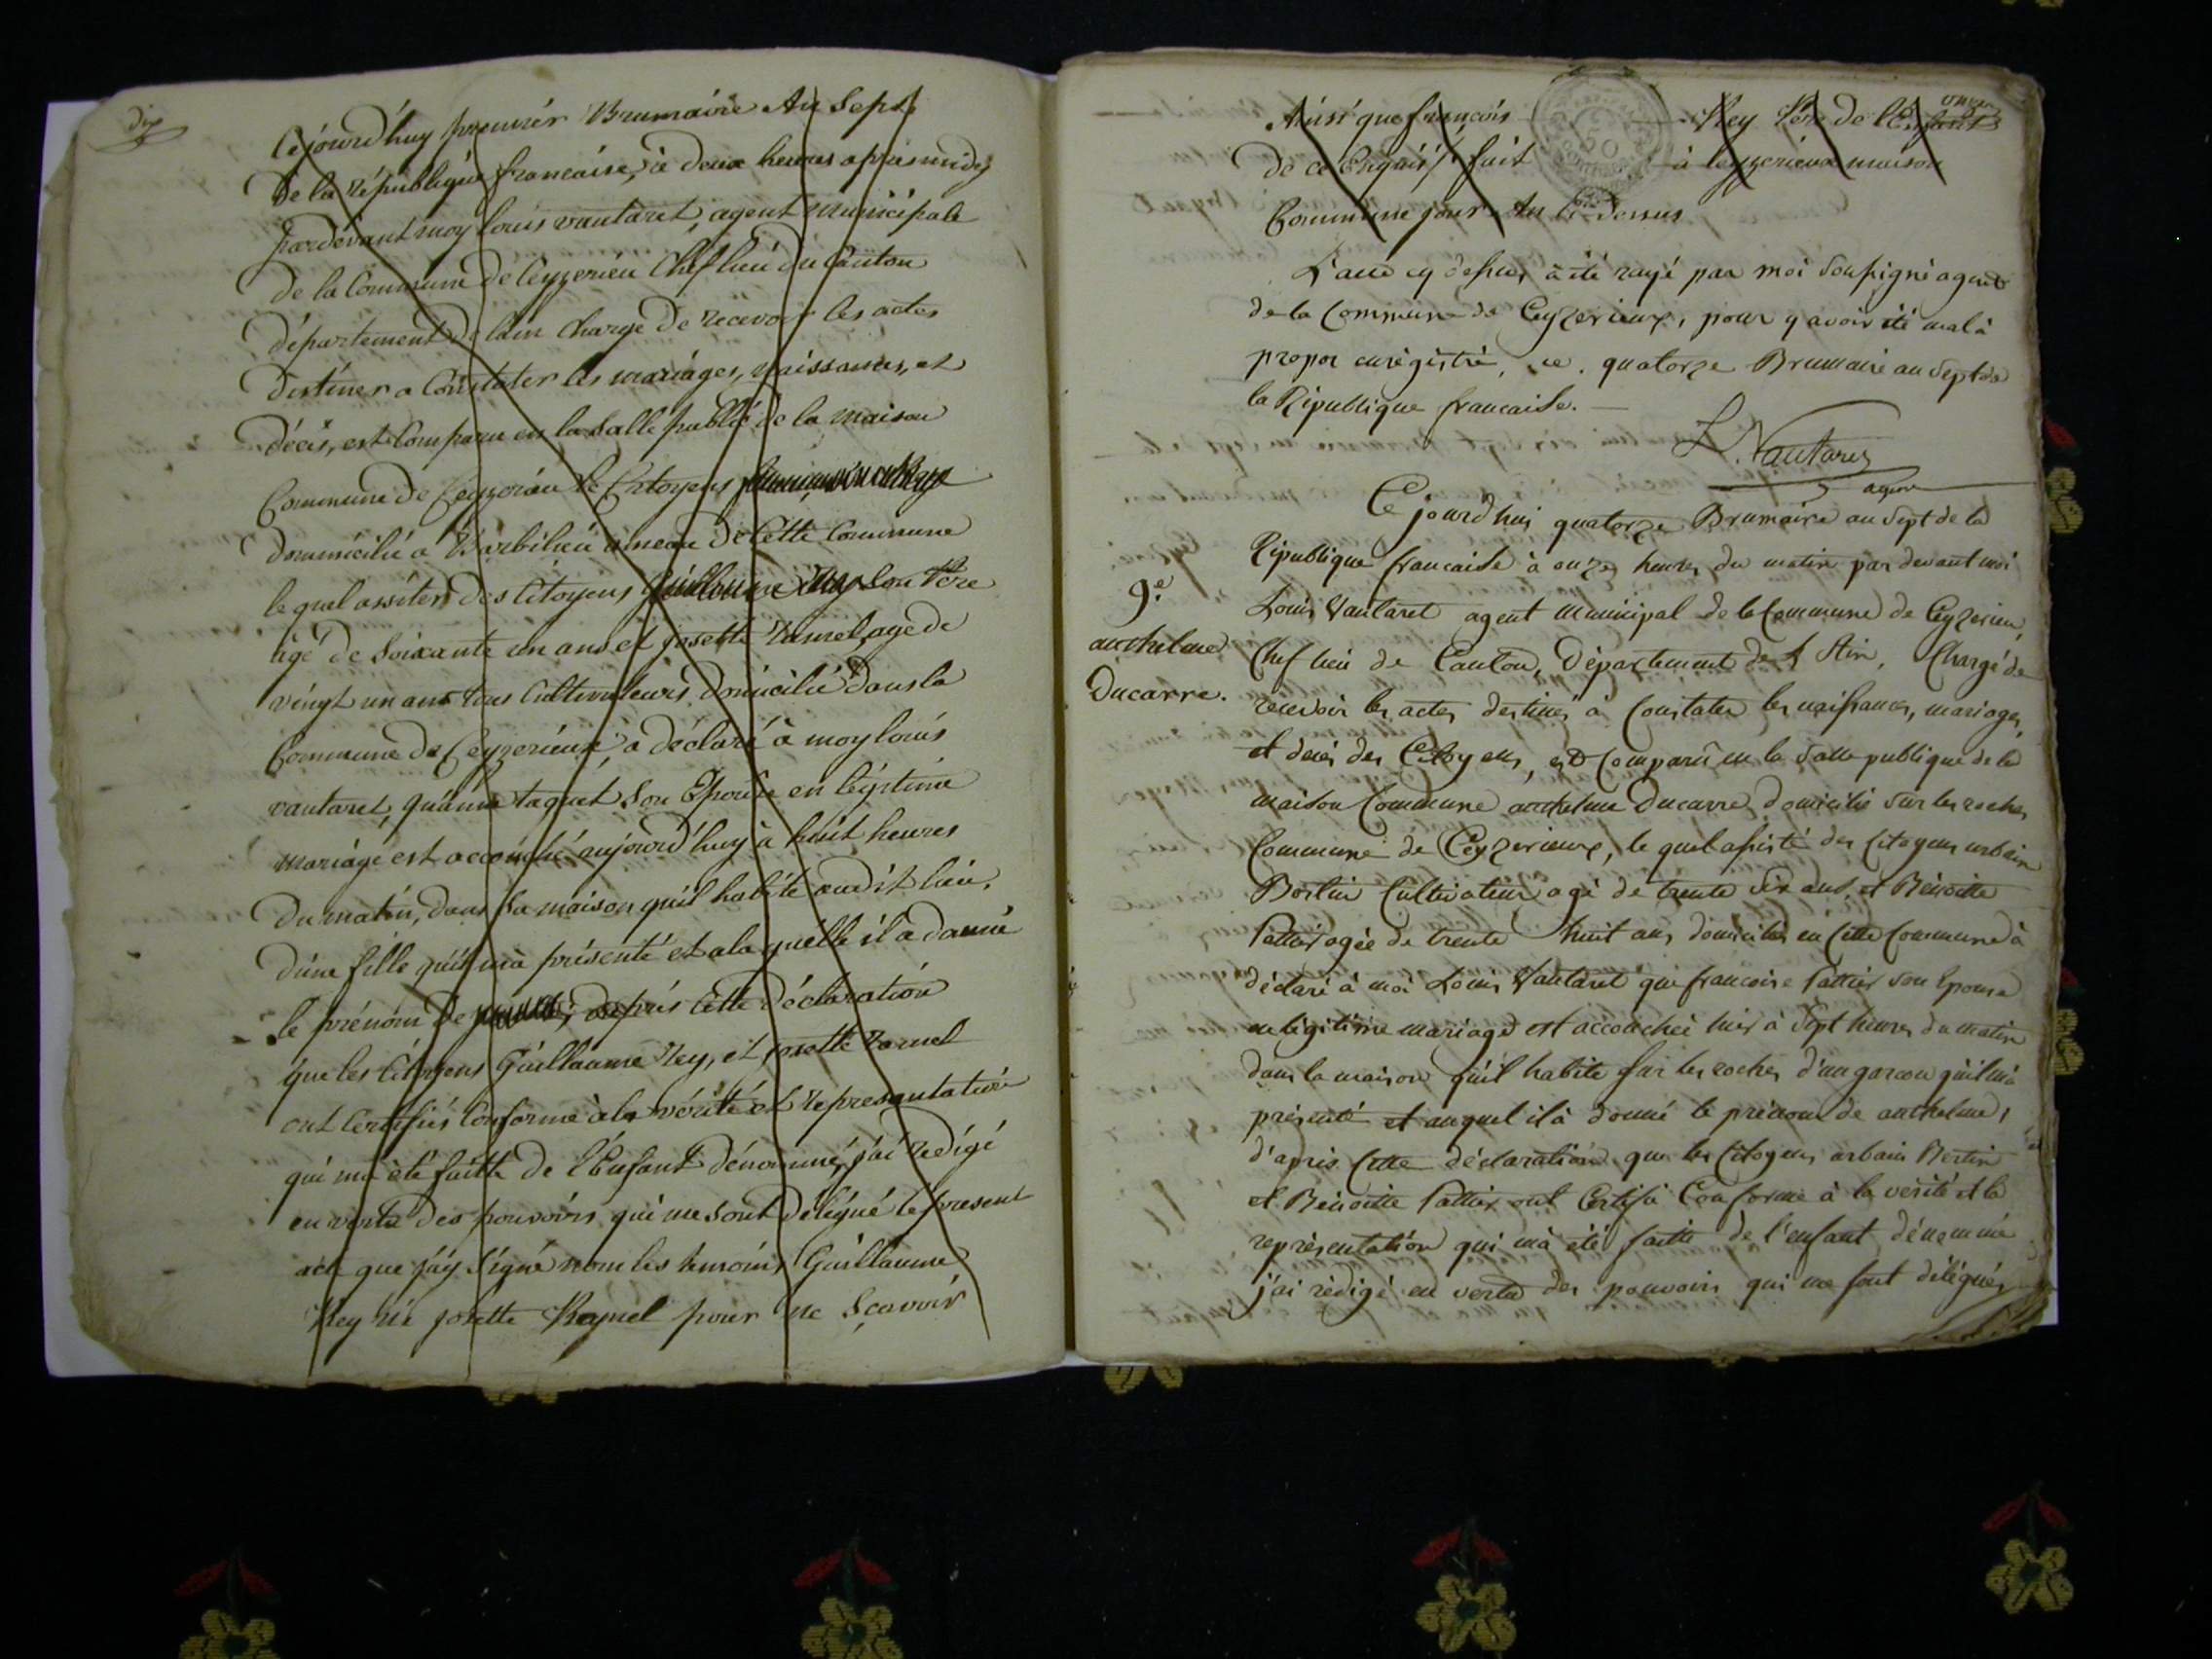 dix
Cejourd'huy premier Brumaire An Sept
De la république francaise, à deux heures apres midy
pardevant moy louis vautaret, agent municipale
De la Commune De Ceyzerieu Chef lieu du Canton
département de lain Charge De recevoir les actes
Destiner a Constater les mariages, naissances, et
Décès, est Comparu en la salle public de la maison
Commune de Ceyzerieu le Citoyens
Domicilié a Varbilieu ameau De Cette Commune
le quel assiter des Citoyens Guillaume Rey son Pere
âgé de soixante un ans et josette Ramel, agé de
vingt un ans tous Cultivateurs, Domicilié Dans la
Commune De Ceyzerieux, a déclaré à moy louis
vautaret, qu'anne taquet son Epouse en légitime
mariage est accouché aujourd'huy à huit heures
Du matin, dans sa maison quil habite audit lieu,
D'une fille quil m'a présenté et a la quelle il a donné
le prénom De Dapres Cette Déclaration
que les Citoyens Guillaume Rey, et josette Ramel
ont Certifiés Conforme à la vérité et representation
qui ma été faitte de l'Enfant dénommé, j'ai redigé
en vertu des pouvoirs qui me sont Delégué le present
acte que j'ay signé non les temoins Guillaume
Rey ni josette Ramel pour ne sçavoir
onze
Ainsi que françois Rey Père de l'Enfant
De ce Enquis / fait à Ceyzerieux maison
Commune jour An Ci Dessus
L'acte cy dessus à été rayé par moi soussigné agent
de la Commune de Ceyzerieux, pour y avoir été mal à
propos enrégistré, ce quatorze Brumaire an Sept de
la République francaise.
L. Vautaret
agent
Ce jourd'hui quatorze Brumaire an Sept de la
République francaise à onze heures du matin par devant moi
9e
Louis Vautaret agent municipal de la Commune de Ceyzerieu,
anthelme
Chef lieu de Canton, Département de l'Ain, Chargé de
Ducarre.
recevoir les actes destinés à Constater les naissances, mariages,
et decès des Citoyens, est Comparû en la salle publique de la
maison Commune anthelme Ducarre, domicilié sur les roches,
Commune de Ceyzerieux, le quel assisté des Citoyens urbain
Bertin Cultivateur agé de trente six ans, et Benoitte
Pattier agée de trente huit ans, domiciliés en Cette Commune à
déclaré à moi Louis Vautaret que francoise Pattier son Epouse
en légitime mariage est accouchée hier à Sept heures du matin
dans la maison quil habite sur les roches d'un garcon quil m'à
présenté et auquel il à donné le prénom de anthelme,
d'apris Cette déclaration que les Citoyens urbain Bertin
et Benoitte Pattier ont Certifié Conforme à la verité et la
représentation qui mà été faitte de l'enfant dénommé
j'ai rédigé en vertu des pouvoirs qui me sont délégués